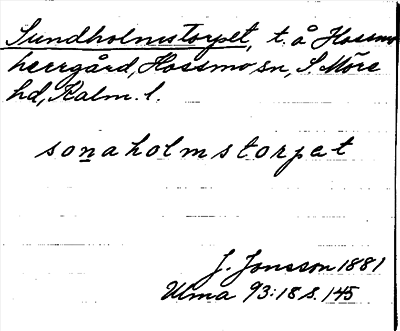 Sundholmstorpet, t. å Hossmo
herrgård, Hossmo sn, S. Möre
hd, Kalm. l.
sonaholmstorpat
J. Jonsson 1881
Ulma 93:18 s. 145